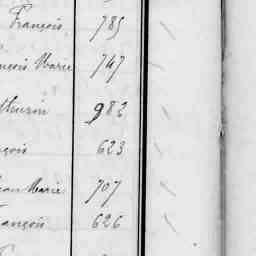 François 785
nçois Marie 747
thurin 982
nçois 623
ean Marie 707
rançois 626